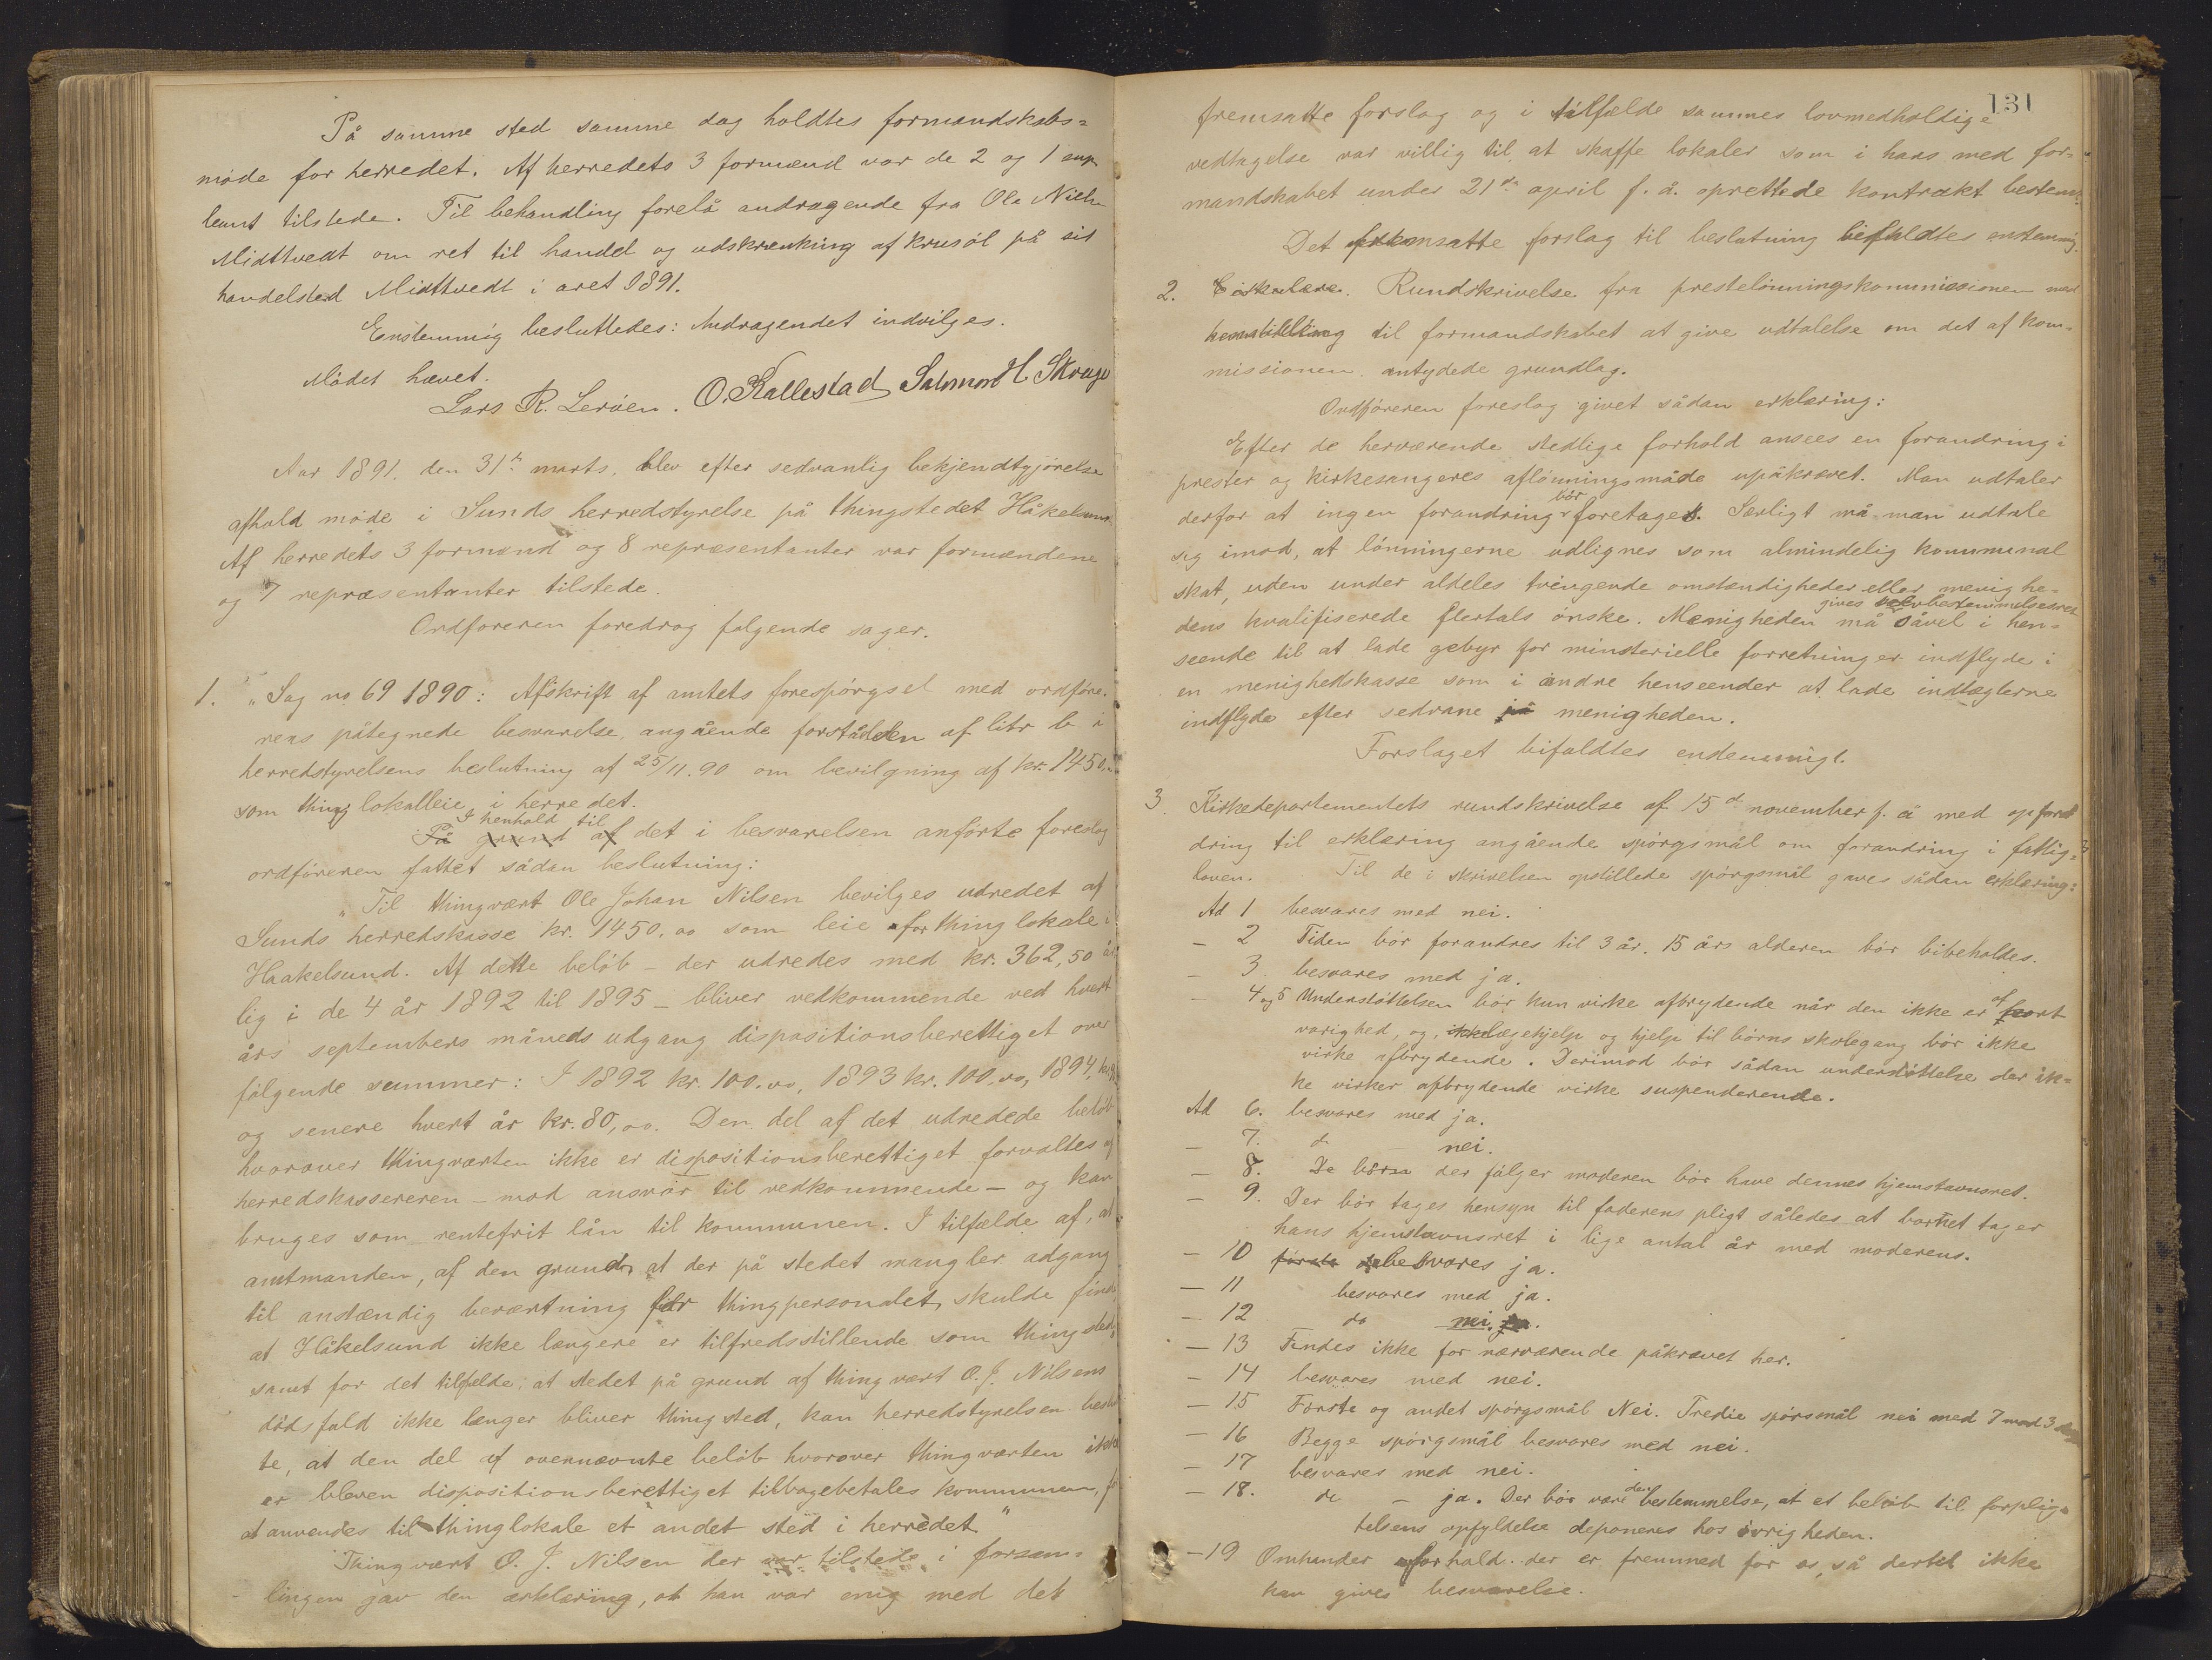 På samme sted samme dag holdtes formandskabs=
møde for herredet. Af herredets 3 formænd var de 2 og 1 sup
leant tilstede. Til behandling forelå andragende fra Ole Niels
Midttvedt om ret til handel og udskjenkning af krusøl på sit
handelsted Midttvedt i året 1891.
Enstemmig besluttedes: Andragendet indvilges.
Mødet hævet.
Lars R. Lerøen. O. Kallestad Salomon H Skooge
Aar 1891. den 31te marts. blev efter sedvanlig bekjendtgjørelse
afhold møde i Sunds herredstyrelse på thingstedet Håkelsund.
Af herredets 3 formænd og 8 repræsentanter var formændene
og 7 repræsentanter tilstede.
Ordføreren foredrog følgende sager.
1. "Sag no 69 1890: Afskrift af amtets forespørgsel med ordføre.
rens påtegnede besvarelse, angående forståelsen af litr b i
herredstyrelsens beslutning af 25/11.90 om bevilgning af kr. 1450,
som thinglokalleie i herredet.
I henhold til
På grund af det i besvarelsen anførte foreslog
ordføreren fattet sådan beslutning:
"Til thingvært Ole Johan Nilsen bevilges udredet af
Sunds herredskasse kr. 1450,00 som leie for thinglokale i
Haakelsund. Af dette beløb - der udredes med kr. 362,50 år
lig i de 4 år 1892 til 1895 - bliver vedkommende ved hvert
års septembers måneds udgang dispositionsberettiget over
følgende summer: I 1892 kr. 100,00, 1893 kr. 100,00, 1894, kr.
og senere hvert år kr. 80,00. Den del af det udredede beløb
hvorover thingværten ikke er dispositionsberettiget forvaltes af
herredskassereren - mod ansvar til vedkommende - og kan
bruges som rentefrit lån til kommunen. I tilfælde af, at
amtmanden, af den grund at der på stedet mangler adgang
til anstændig beværtning for thingpersonalet, skulde finde
at Håkelsund ikke længere er tilfredsstillende som thingsted,
samt for det tilfælde, at stedet på grund af thingvært O. J. Nilsens
dødsfald ikke længer bliver thingsted, kan herredstyrelsen beslut
te, at den del af ovennævnte beløb hvorover thingværten ikke
er bleven dispositionsberettiget tilbagebetales kommunen, for
at anvendes til thinglokale et andet sted i herredet."
Thingvært O. J. Nilsen der var tilstede i forsam=
lingen gav den erklæring, at han var enig med det
131
fremsatte forslag og i tilfælde sammes lovmedholdige
vedtagelse var villig til at skaffe lokaler som i hans med for=
mandskabet under 21de april f. å. oprettede kontrakt bestemt.
Det fremsatte forslag til beslutning bifaldtes enstemmig.
2. Cirkulære. Rundskrivelse fra prestelønningskommissionen med
henstilling til formandskabet at give udtalelse om det af kom=
missionen antydede grundlag.
Ordføreren foreslog givet sådan erklæring:
Efter de herværende stedlige forhold ansees en forandring i
prester og kirkesangeres aflønningsmåde upåkrævet. Man udtaler
bör
derfor at ingen forandring foretages. Særligt må man udtale
sig imod, at lønningerne udlignes som almindelig kommunal
skat, uden under aldeles tvingende omstændigheder eller menighe=
gives selvbestemmelsesret
dens kvalifiserede flertals ønske. Menigheden må såvel i hen=
seende til at lade gebyr for ministerielle forretninger indflyde i
en menighedskasse som i andre henseender at lade indtægterne
indflyde efter sedvane på menigheden.
Forslaget bifaldtes endenmigt.
3. Kirkedepartementets rundskrivelse af 15de november f. å med opford
dring til erklæring angående spørgsmål om forandring i fattig=
loven. Til de i skrivelsen opstillede spørgsmål gaves sådan erklæring:
Ad 1 besvares med nei.
- 2 Tiden bör forandres til 3 år. 15 års alderen bör bibeholdes.
- 3. besvares med ja.
af
- 4 og 5 Understøttelsen bör kun virke afbrydende når den ikke er kort
varighed, og, ikke lægehjelp og hjelp til børns skolegang bör ikke
virke afbrydende. Derimod bör sådan understøttelse der ik=
ke virker afbrydende virke suspenderende.
Ad 6. besvares med ja.
- 7. do nei.
- 8. De børn der følger moderen bör have dennes hjemstavnsret.
- 9. Der bör tages hensyn til faderens pligt således at barnet tager
hans hjemstavnsret i lige antal år med moderens.
- 10 første besvares ja.
- 11 besvares med ja.
- 12 do nei. ja.
- 13 Findes ikke for nærværende påkrævet her.
- 14 besvares med nei.
- 15 Første og andet spørgsmål Nei. Tredie spørsmål nei med 7 mod 3
- 16 Begge spørgsmål besvares med nei.
- 17 besvares med nei.
den
- 18. do - ja. Der bör være bestemmelse, at et beløb til forplig=
telsens opfyldelse deponeres hos øvrigheden.
- 19 Omhander forhold der er fremmed for os, så dertil ikke
kan gives besvarelse.